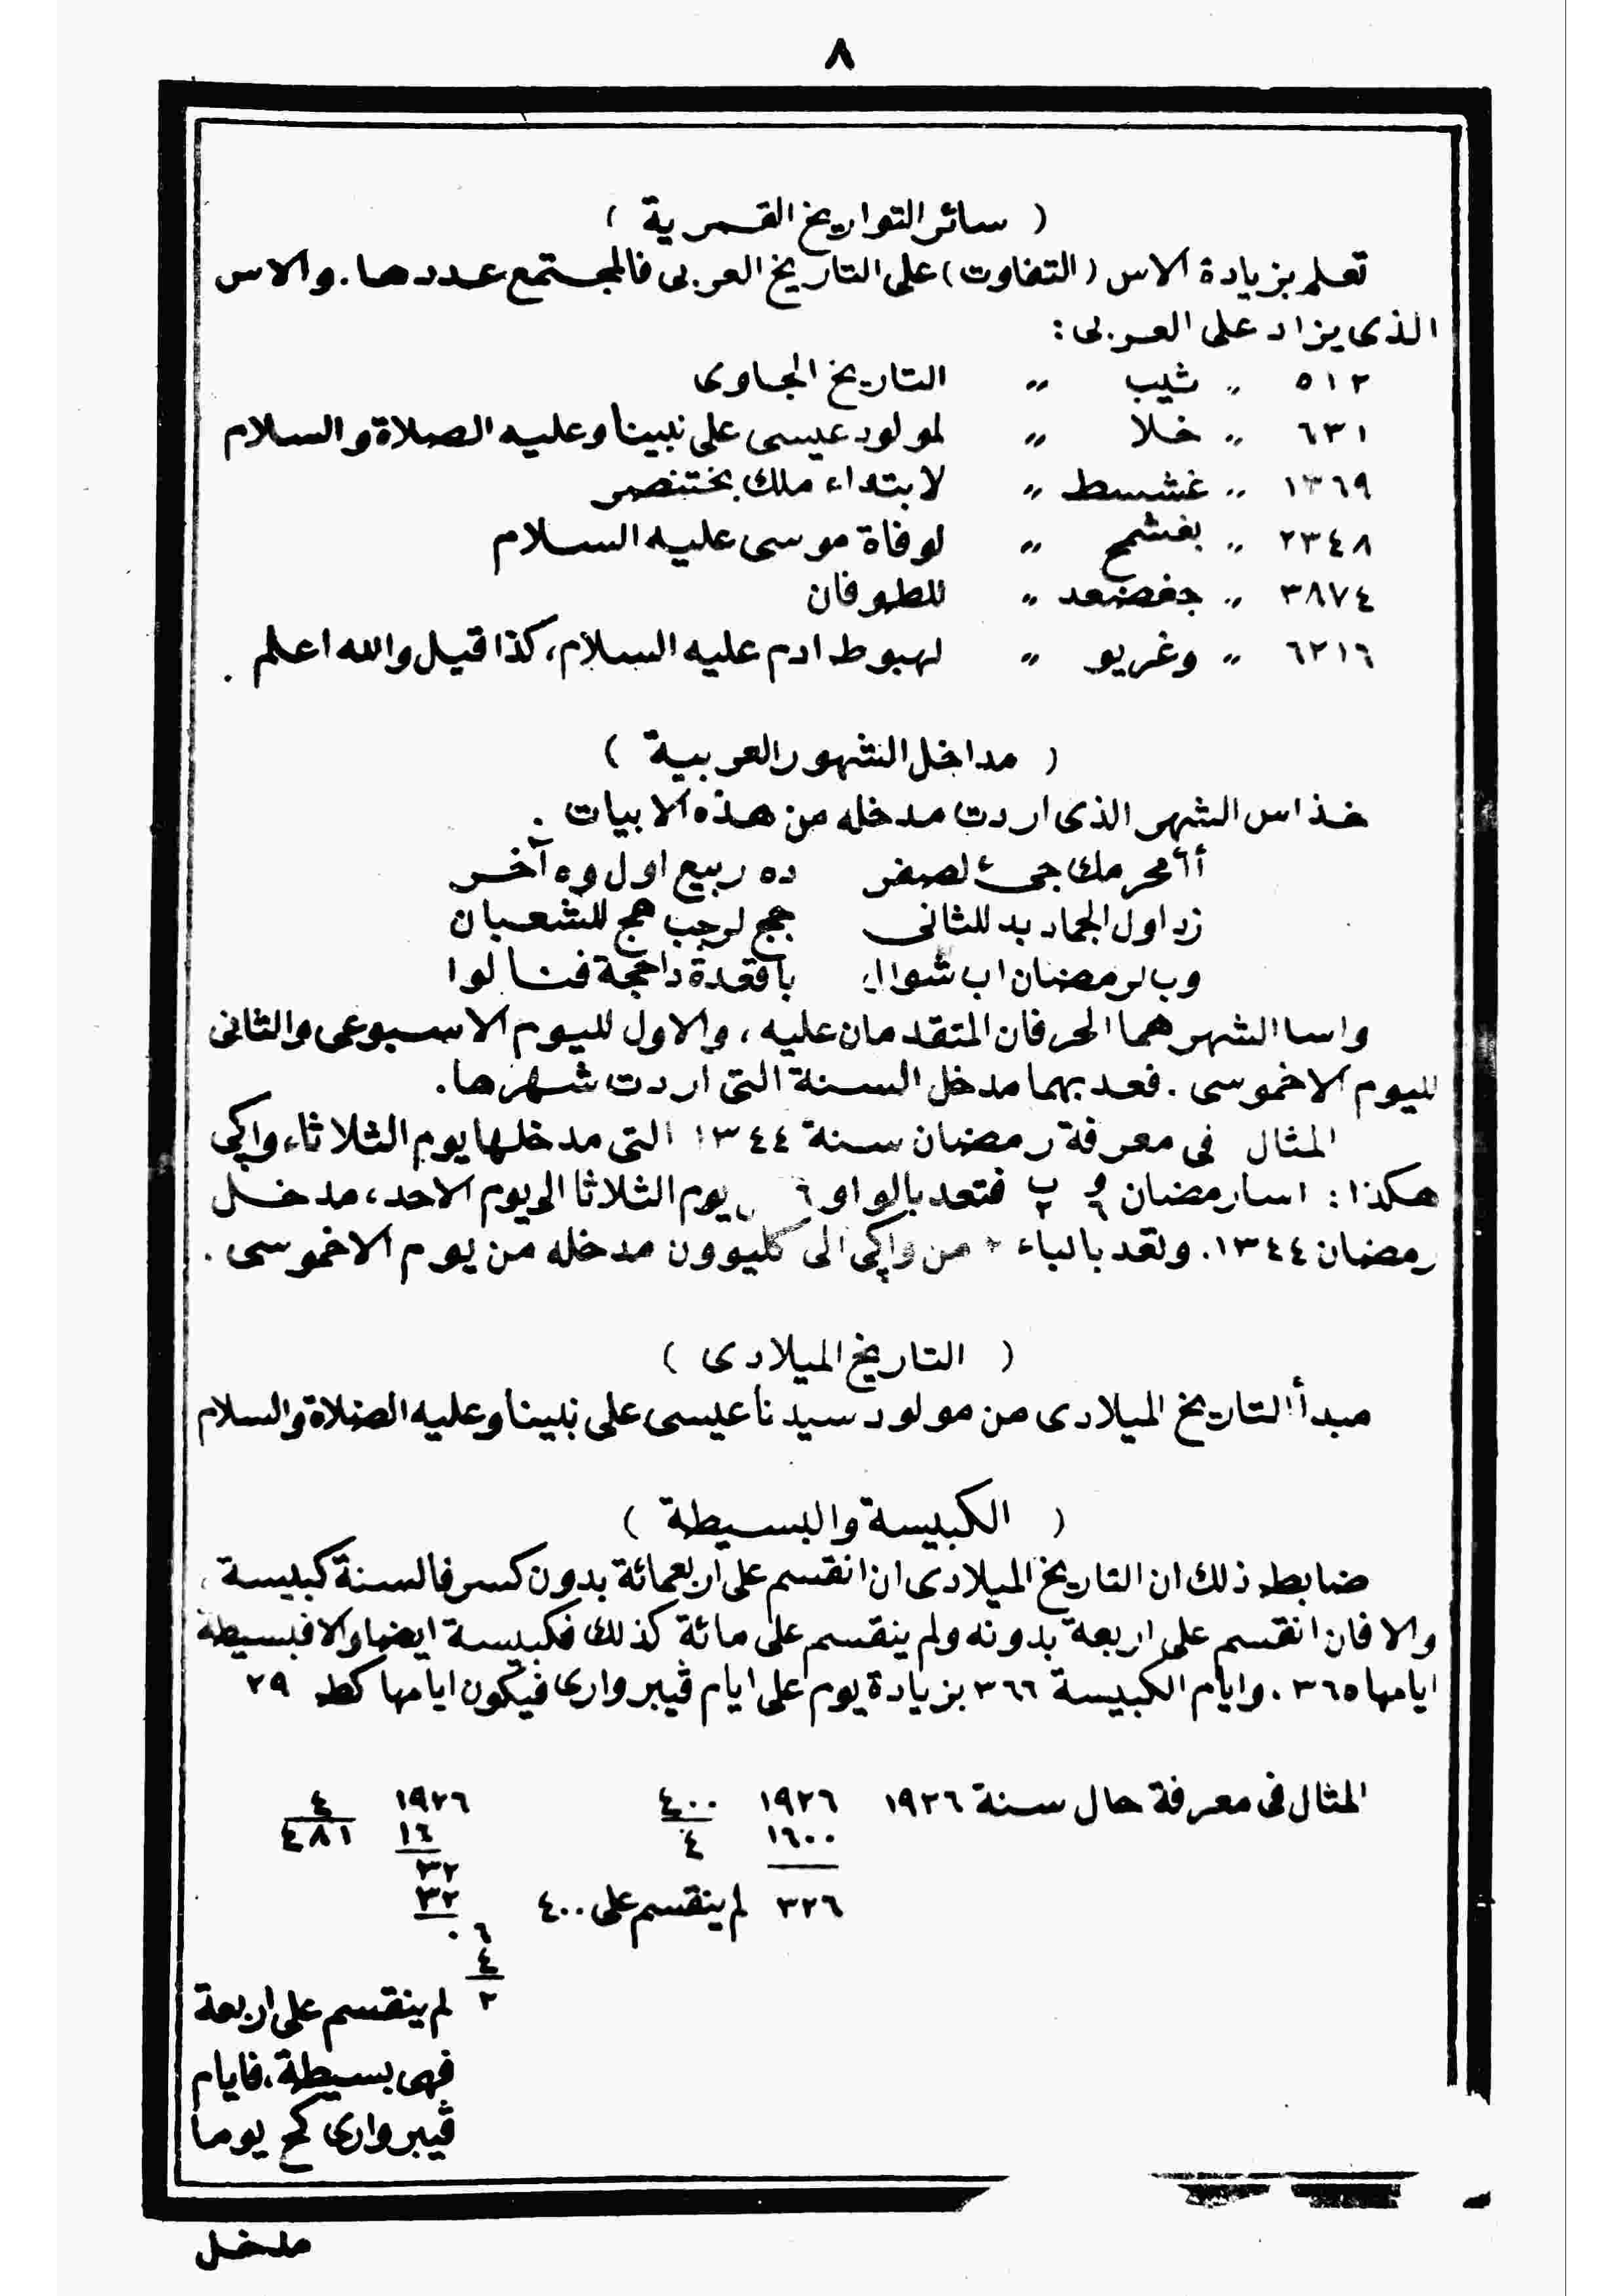 ٨
( سائر التواريخ القمرية )
تعلم بزيادة الاس (التفاوت) على التاريخ العربى فالمجتمع عددها. والاس
الذى يزاد على العربى :
٥١٢ 〃 ثيب 〃 التاريخ الجاوى
٦٣١ 〃 خلا 〃 لمولود عيسى على نبينا وعليه الصلاة والسلام
١٣٦٩ 〃 غشسط 〃 لابتداء ملك بختنصر
٢٣٤٨ 〃 بغشمح 〃 لوفاة موسى عليه السلام
٣٨٧٤ 〃 جغضعد 〃 للطوفان
٦٢١٦ 〃 وغريو 〃 لهبوط ادم عليه السلام، كذا قيل والله اعلم .
( مداخل الشهور العربية )
خذ اس الشهر الذى اردت مدخله من هذه الابيات .
أأ محرمك جىء لصفر ده ربيع اول وه آخر
زد اول الجماد بد للثانى ججج لرجب هج للشعبان
وب لرمضان اب شوال با فقعدة دا حجة فنالوا
واسا الشهر هما الحرفان المتقدمان عليه، والاول لليوم الاسبوعى والثانى
لليوم الاخموسى . فعد بهما مدخل السنة التى اردت شهرها.
المثال فى معرفة رمضان سنة ١٣٤٤ التى مدخلها يوم الثلاثاء واكى
هكذا : اسا رمضان و ب ٦ ٢ فتعد بالواو ٦ يوم الثلاثا الى يوم الاحد، مدخل
رمضان ١٣٤٤. وتعد بالباء ٢ من واكى الى كليوون مدخله من يوم الاخموسى .
( التاريخ الميلادى )
مبدأ التاريخ الميلادى من مولود سيدنا عيسى على نبينا وعليه الصلاة والسلام
( الكبيسة والبسيطة )
ضابط ذلك ان التاريخ الميلادى ان انقسم على اربعمائة بدون كسر فالسنة كبيسة
والا فان انقسم على اربعة بدونه ولم ينقسم على مائة كذلك فكبيسة ايضا والا فبسيطة
ايامها ٣٦٥ . وايام الكبيسة ٣٦٦ بزيادة يوم على ايام ڤيبروارى فيكون ايامها كط ٢٩
المثال فى معرفة حال سنة ١٩٢٦ ١٩٢٦ ٤٠٠ ١٩٢٦ ٤
١٦٠٠ ٤ ١٦ ٤٨١
٣٢
٣٢٦ لم ينقسم على ٤٠٠ ٣٢
٠ ٦
٤
٢ لم ينقسم على اربعة
فهى بسيطة، فايام
ڤيبروارى كح يوما
مدخل